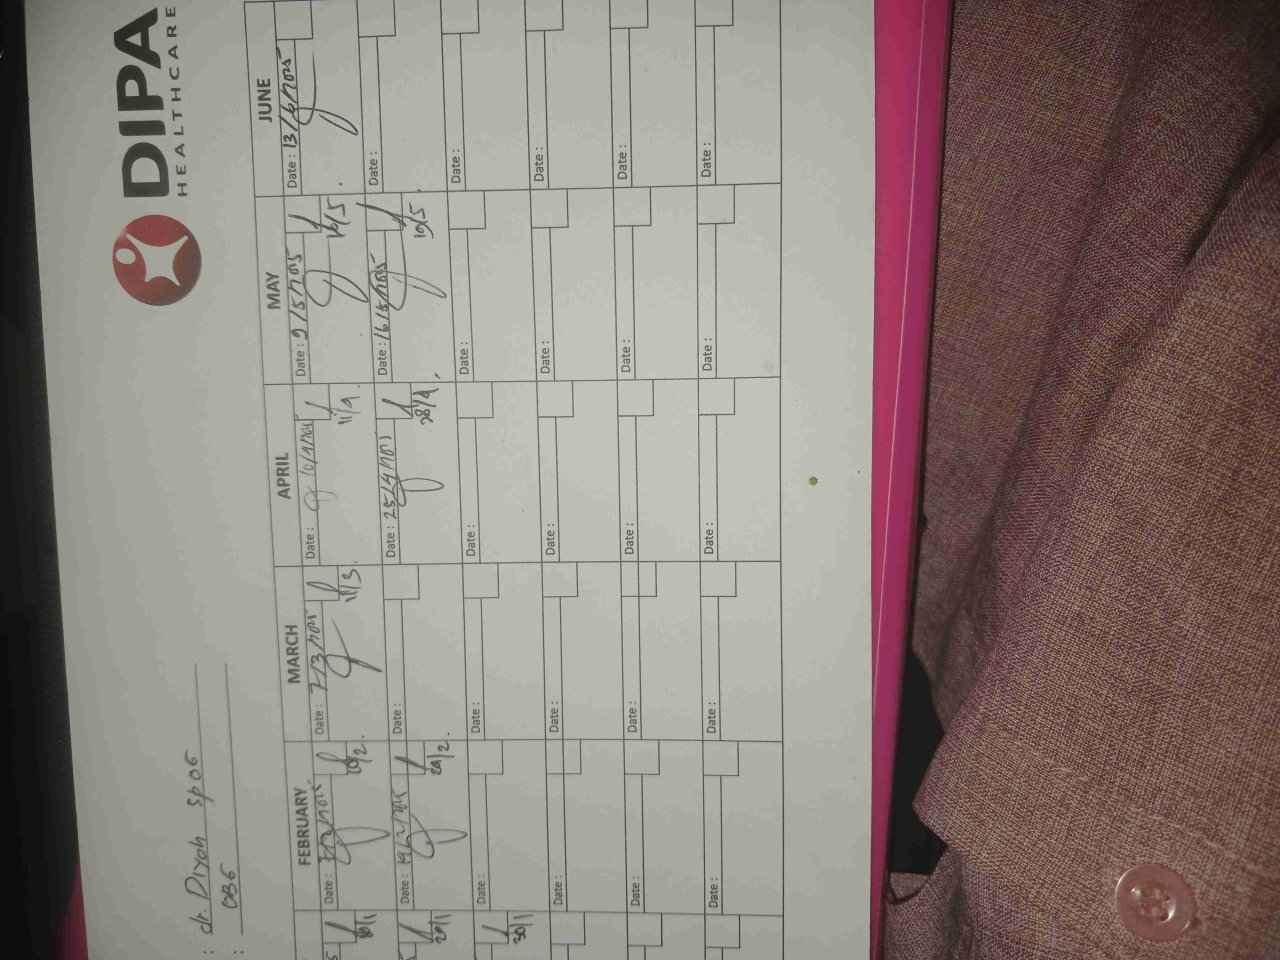 DIPA
HEALTHCARE
: dr. Diyah SpOG
: OBG
FEBRUARY MARCH APRIL MAY JUNE
18/1 Date : Date : 7/3/2025 Date : 10/4/2025 Date : 9/5/2025 Date : 13/6/2025
10/2. 11/3. 11/4. 14/5
20/1 Date : 19/2/2025 Date : Date : 25/4/2025 Date : 16/5/2025 Date :
20/2. 28/4, 19/5.
30/1 Date : Date : Date : Date : Date :
Date : Date : Date : Date : Date :
Date : Date : Date : Date : Date :
Date : Date : Date : Date : Date :